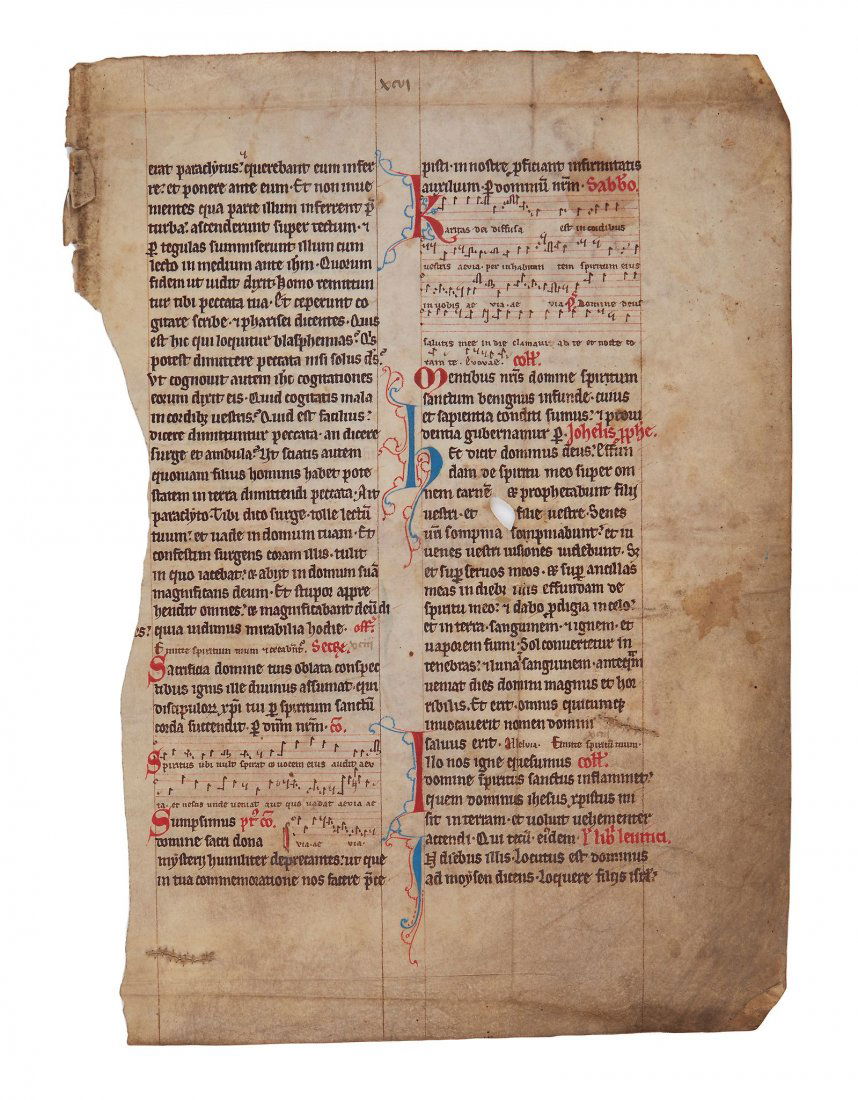 xcvi
erat paraclytus? querebant eum infer
re? et ponere ante eum. Et non inue
nientes qua parte illum inferrent p̄
turba? ascenderunt super tectum. ⁊
ꝑ tegulas summiserunt illum cum
lecto in medium ante ihm̄. Quorum
fidem ut uidit dixit. homo remittun
tur tibi peccata tua. Et ceperunt co
gitare scribe. ⁊ pharisei dicentes. Quis
est hic qui loquitur blasphemias? Q̄s
potest dimittere peccata nisi solus d̄s?
Vt cognouit autem ih̄c cogitationes
eorum dixit eis. Quid cogitatis mala
in cordibꝫ uestris? Quid est facilius?
dicere dimittuntur peccata. an dicere
surge et ambula? Ut sciatis autem
quoniam filius hominis habet pote
statem in terra dimittendi peccata. Ait
paraclyto. Tibi dico surge. tolle lectū
tuum? et uade in domum tuam. Et
confestim surgens coram illis. tulit
in quo iacebat? ⁊ abijt in domum suā
magnificans deum. Et stupor appre
hendit omnes? ⁊ magnificabant deū di
es? quia uidimus mirabilia hodie. off̄.
Emitte spiritum tuum ⁊ creabnt̄. Secre.
Sacrificia domine tuis oblata conspec
tibus ignis ille diuinus assumat. qui
discipuloꝝ xp̄i tui ꝑ spiritum sanctū
corda succendit. ꝑ dn̄m nr̄m. cō.
Spiritus ubi uult spirat ⁊ uocem eius audis aev
ia. et nescis unde ueniat aut quo uadat aevia ae
Sumpsimus pt̓. cō. via. ae via.
domine sacri dona
mysterij humiliter deprecantes? ut que
in tua commemoratione nos facere p̄ce
pisti. in nostre ꝓficiant infirmitatis
auxilium. ꝑ dominū nr̄m. Sabb̄o.
Karitas dei diffusa est in cordibus
uestris aevia. per inhabitan tem spiritum eius
in uobis ae via. ae via. p̄s. Domine deus
salutis mee in die clamaui ad te et nocte co
ram te. Evovae. coll̄.
Mentibus nr̄is domine spiritum
sanctum benignus infunde. cuius
et sapientia conditi sumus? ⁊ proui
dentia gubernamur ꝑ. Johelis ꝓphe.
hEc dicit dominus deus. Effun
dam de spiritu meo super om
nem carnē ⁊ prophetabunt filij
uestri. et filie uestre. Senes
ur̄i sompnia sompniabunt? et iu
uenes uestri uisiones uidebunt. Sꝫ
et suꝑ seruos meos. ⁊ suꝑ ancillas
meas in diebꝫ illis effundam de
spiritu meo? ⁊ dabo ꝓdigia in celo?
et in terra. sanguinem. ⁊ ignem. et
uaporem fumi. Sol conuertetur in
tenebras? ⁊ luna ī sanguinem. anteqͣm
ueniat dies domini magnus et hor
ribilis. Et erit. omnis quicumqꝫ
inuocauerit nomen domini
saluus erit. Alleluia. Emitte spiritū tuum.
Illo nos igne quesumus coll̄.
domine spiritus sanctus inflammet?
quem dominus ihesus xpistus mi
sit in terram. et uoluit uehementer
accendi. Qui tecū. eidem. l̄ libri leuitici.
IN diebus illis. Locutus est dominus
ad moysen dicens. Loquere filijs isrl̄?